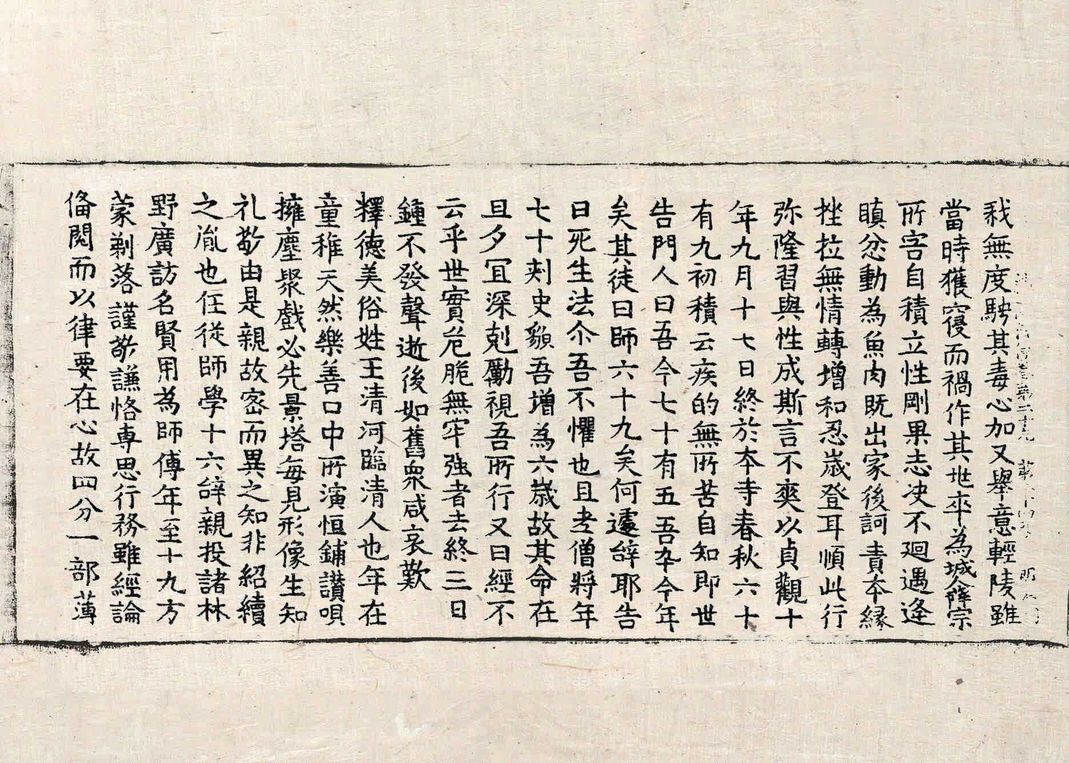 戕無度騁其毒心加又舉意輕陵雖
當時獲寑而禍作其兆卒為城薛宗
所害自積立性剛果志決不迴遇逢
瞋忿動為魚肉既出家後訶責夲緣
挫拉無情轉增和忍歲登耳順此行
弥隆習與性成斯言不爽以貞觀十
年九月十七日終於夲寺春秋六十
有九初積云疾的無所苦自知即世
告門人曰吾今七十有五吾卒今年
矣其徒曰師六十九矣何遽辝耶告
曰死生法尒吾不懼也且老僧將年
七十刾史貌吾增為六歲故其命在
旦夕宜深剋勵視吾所行又曰經不
云乎世實危脆無牢強者去終三日
鍾不發聲逝後如舊衆咸哀歎
釋德美俗姓王清河臨清人也年在
童稚天然樂善口中所演恒鋪讃唄
擁塵聚戲必先景塔每見形像生知
礼敬由是親故密而異之知非紹續
之胤也任從師學十六辝親投諸林
野廣訪名賢用為師傅年至十九方
蒙剃落謹敬謙恪専思行務雖經論
俻閱而以律要在心故四分一部薄